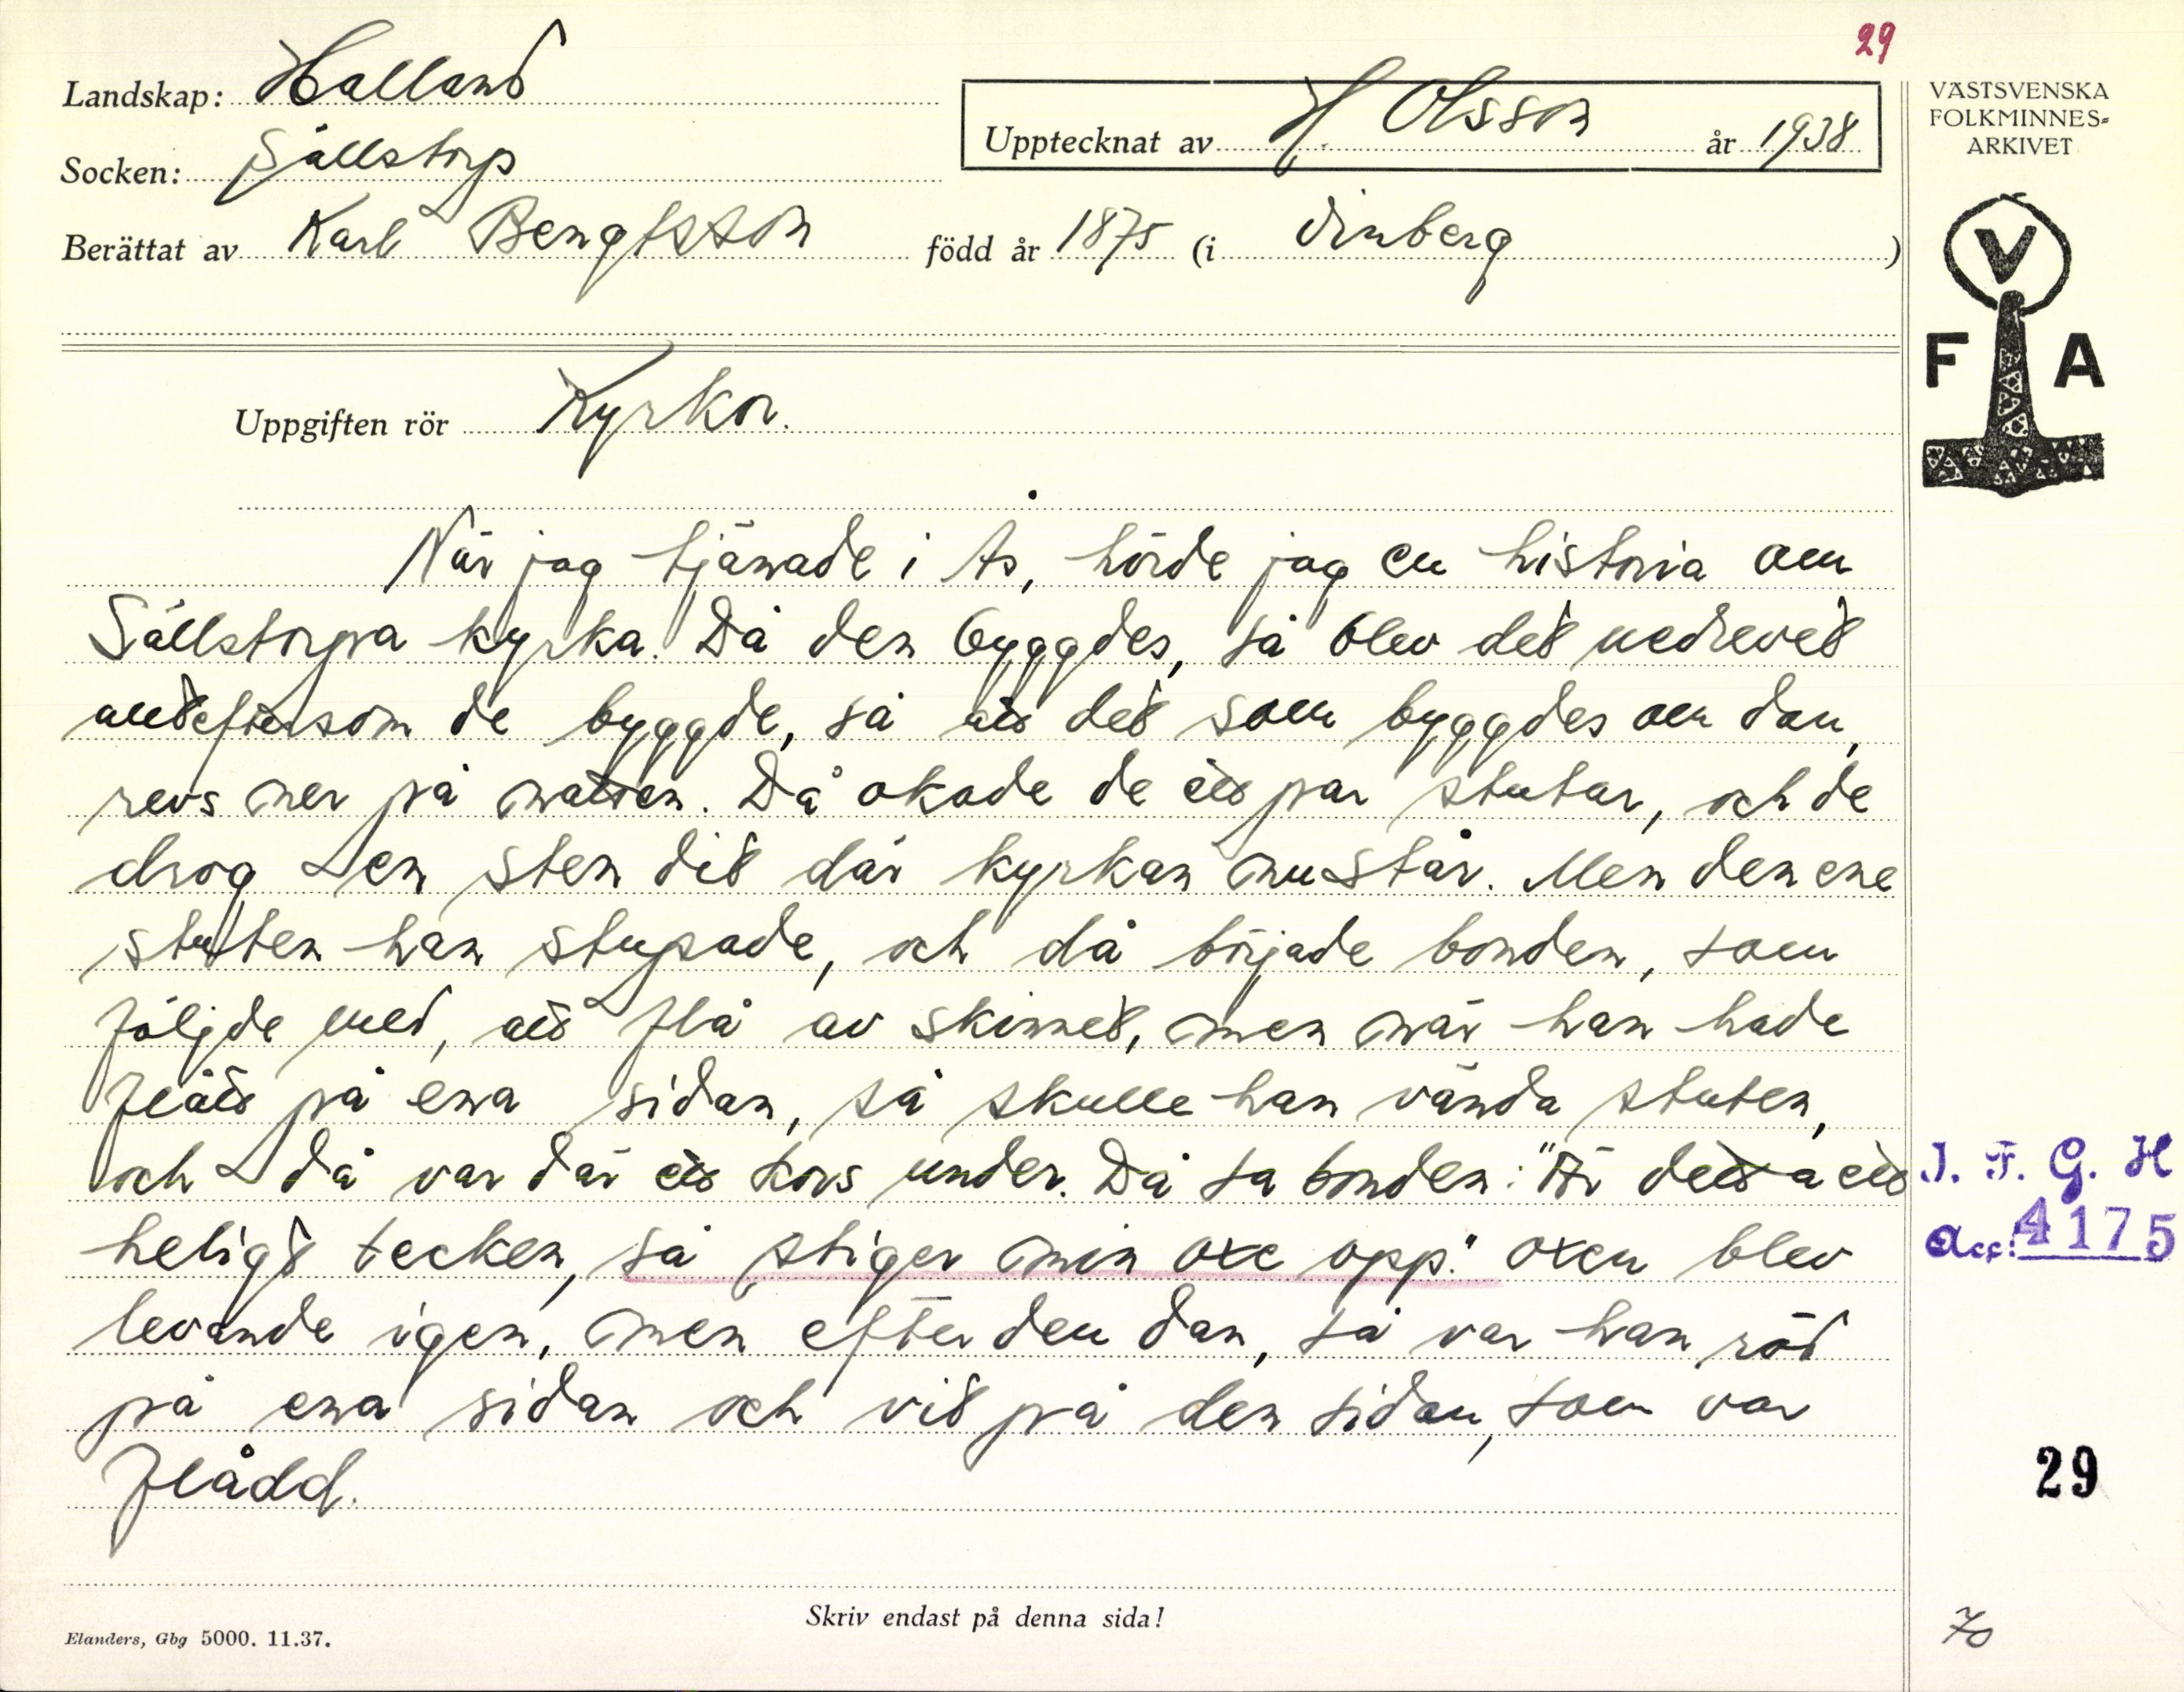 29
Landskap: Halland
Upptecknat av H. Olsson år 1938
VÄSTSVENSKA
FOLKMINNES-
ARKIVET
Socken: Sällstorp
Berättat av Karl Bengtsson född år 1875 (i Vinberg)
V
F A
Uppgiften rör Kyrkor.
När jag tjänade i Ås, hörde jag en historia om
Sällstorpa kyrka. Då den byggdes, så blev det nedrevet
alltefter som de byggde, så att det som byggdes om dan,
revs ner på natten. Då okade de ett par stutar, och de
drog en sten dit där kyrkan nu står. Men den ene
stuten han stupade, och då började bonden, som
följde med, att flå av skinnet, men när han hade
flått på ena sidan, så skulle han vända stuten,
och då var där ett kors under. Då sa bonden: "Är detta ett
heligt tecken, så stiger min oxe opp." Oxen blev
levande igen, men efter den dan, så var han röd
på ena sidan och vit på den sidan, som var
flådd.
I. F. G. H
Acc: 4175
29
Skriv endast på denna sida!
Elanders, Gbg 5000. 11.37.